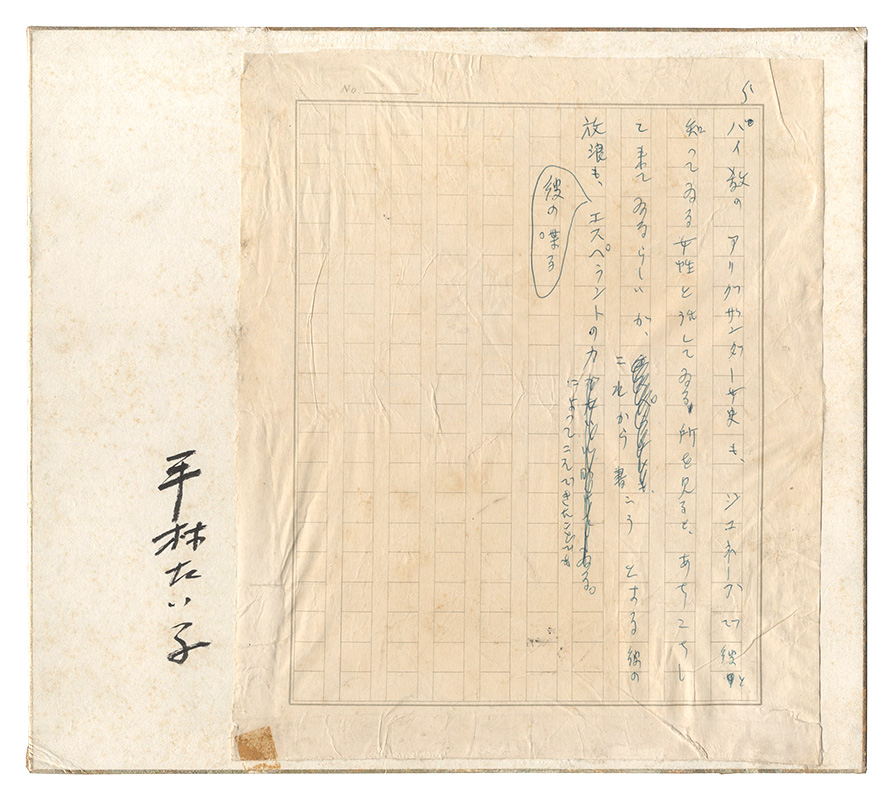 No.
バイ教のアリグザンダー女史も、ジュネーブで彼と
知ってゐる女性と話してゐる所を見ると、あちこちし
て来てゐるらしいが、これから書こうとする彼の
放浪も、エスペラントの力
によってこえてきたことであ
る。
彼の喋る
平林たい子